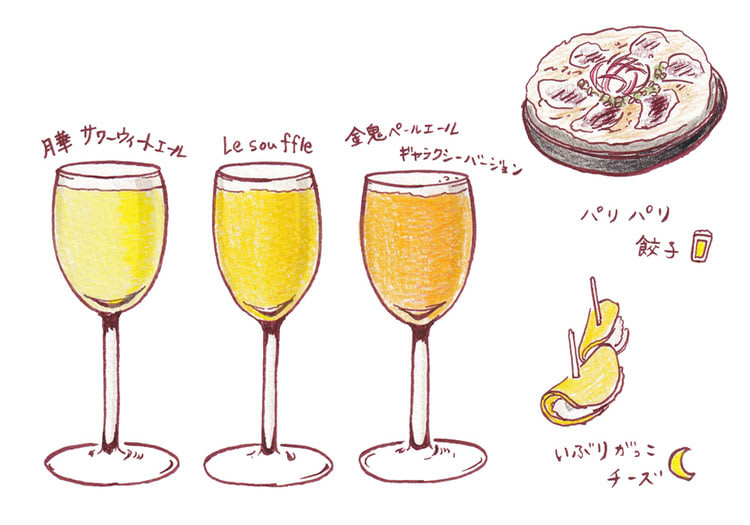 月華 サワーウィートエール
Le souffle
金鬼ペールエール
ギャラクシーバージョン
パリパリ
餃子
いぶりがっこ
チーズ